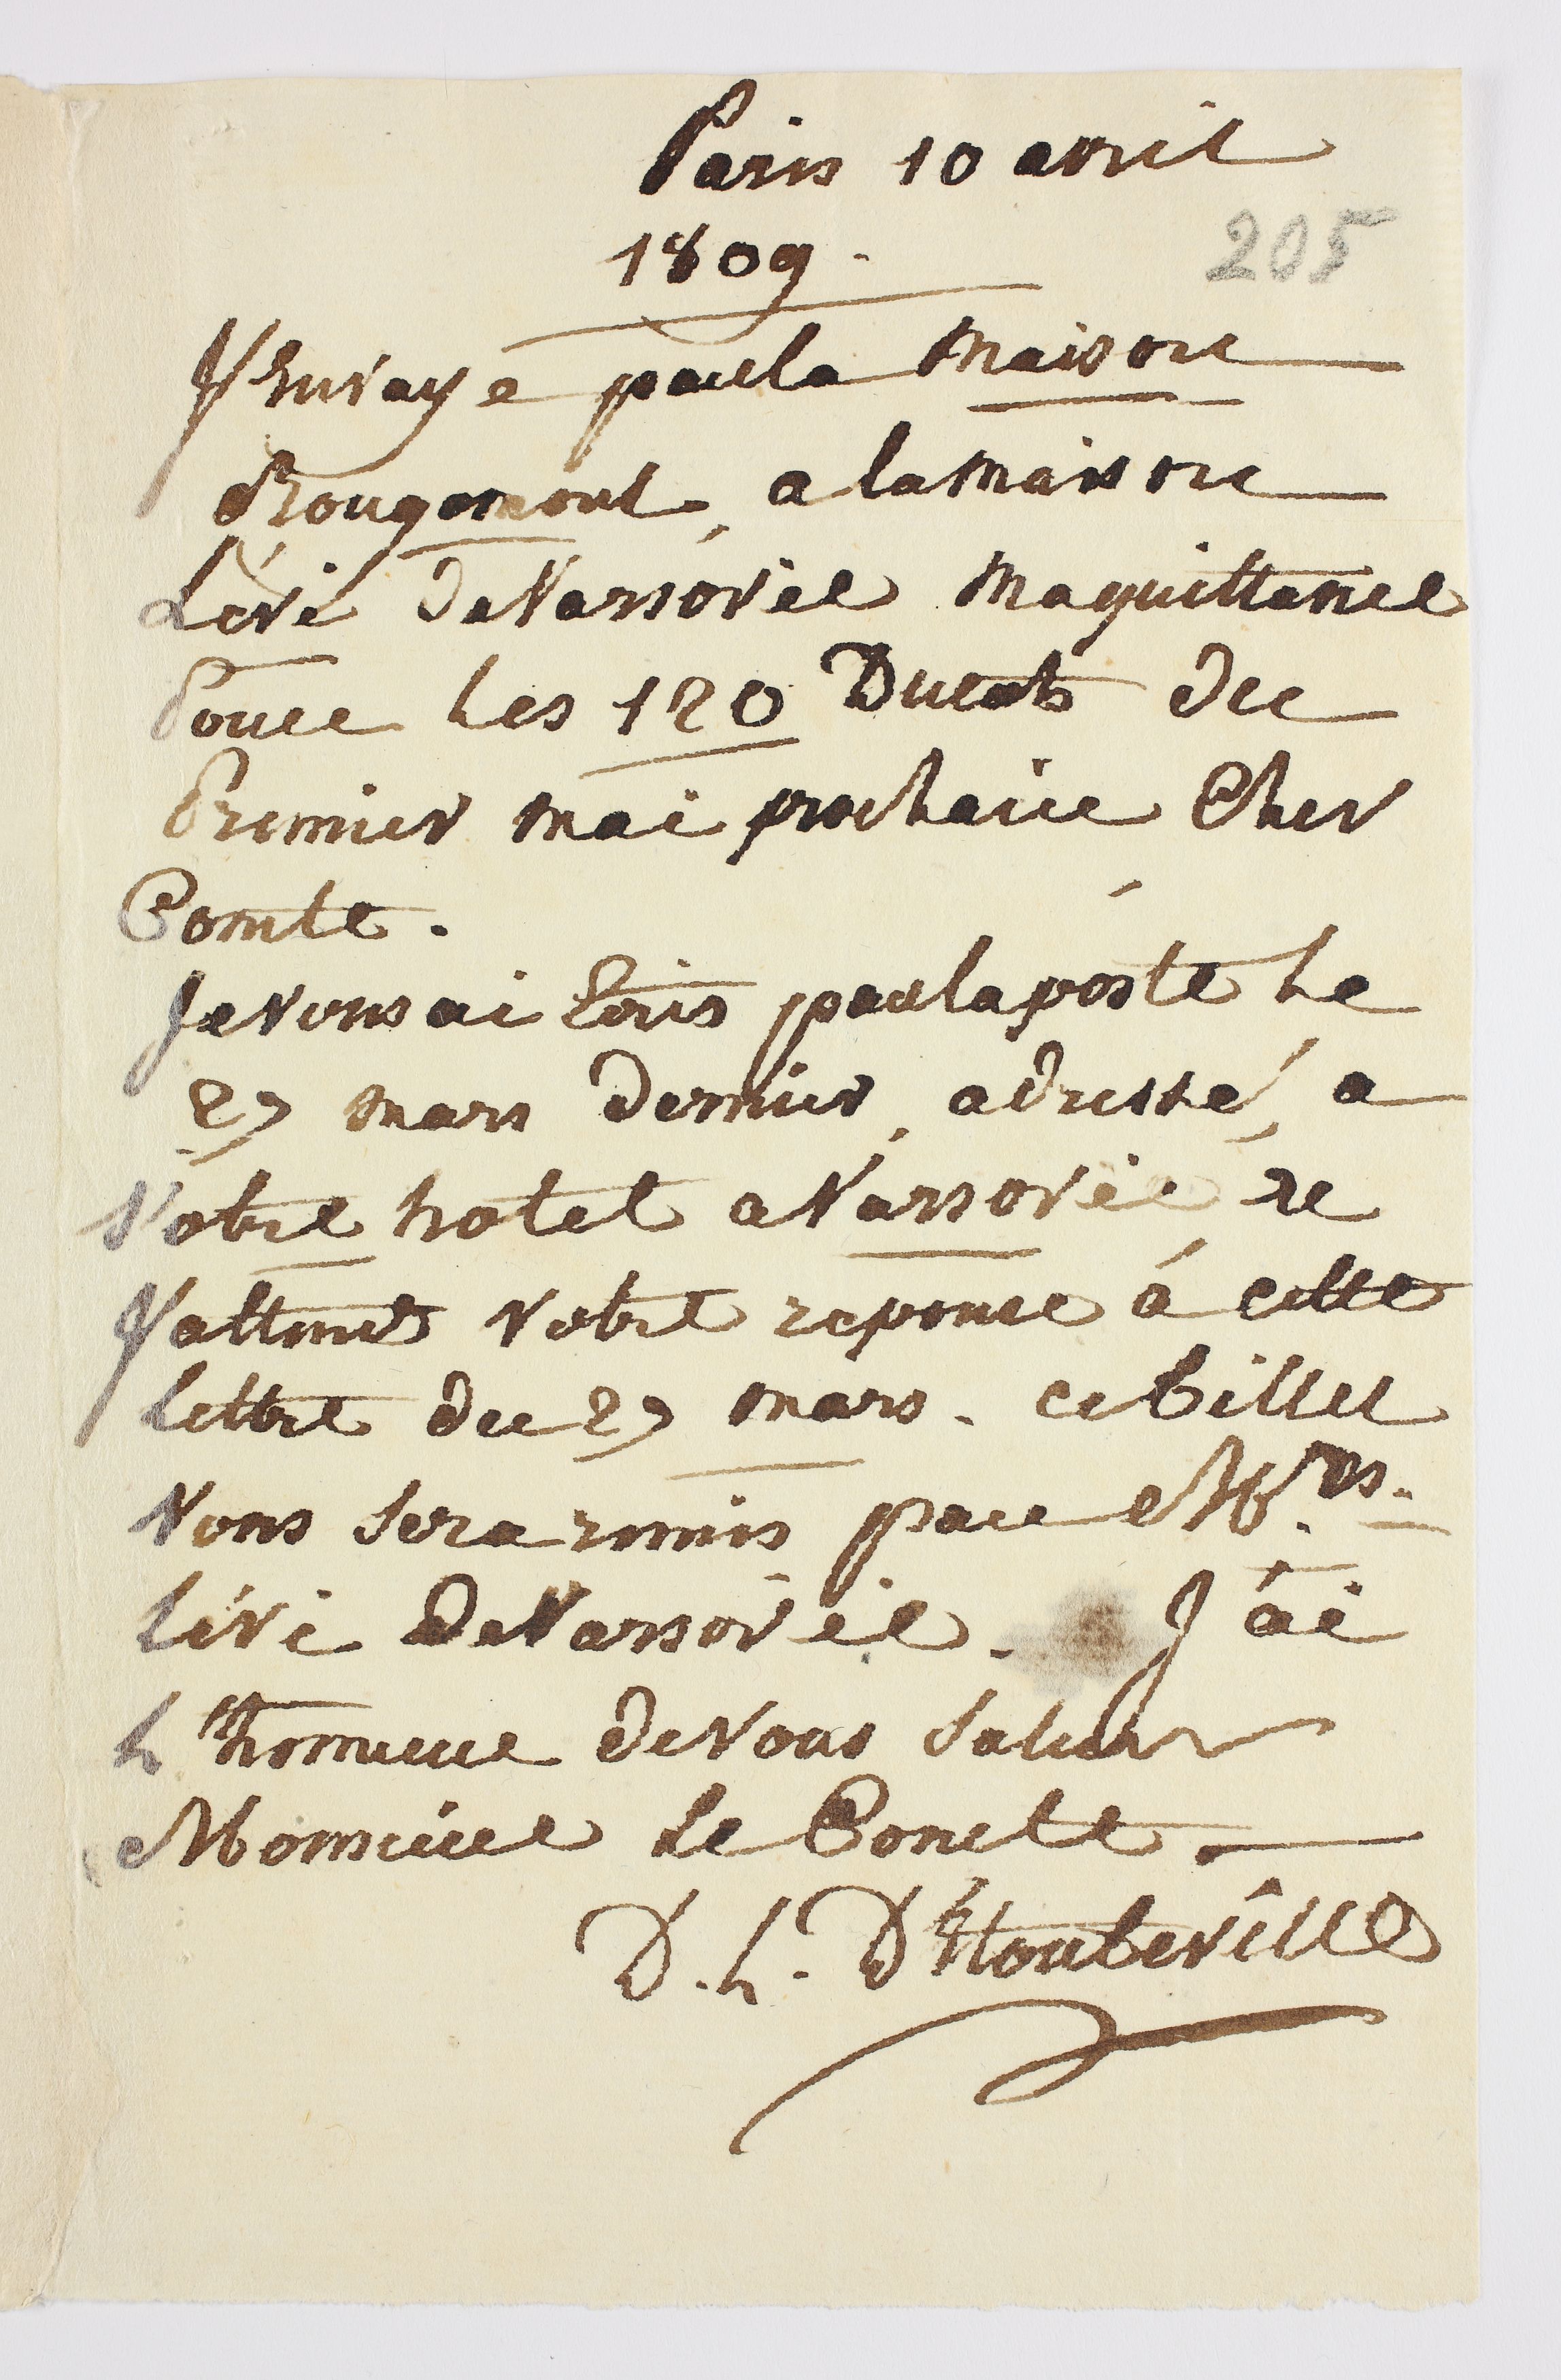 Paris 10 avril
1809.
205
J'Envaye par la Maison
Rougemont, a la Maison
Lévi de Varsovie Ma quittance
Pour les 120 Ducats du
Premier mai prochain Cher
Comte.
Je vous ai Ecris par la poste Le
27 mars dernier, adressé, a
Votre hotel a Varsovie
J'attends Votre reponce à cette
Lettre du 27 mars. ce billet
Vous sera remis par Mrs.
Lévi de Varsovie. J'ai
L'honneur de Vous saluer
Monsieur Le Comte.
D. L. D'Houbeville